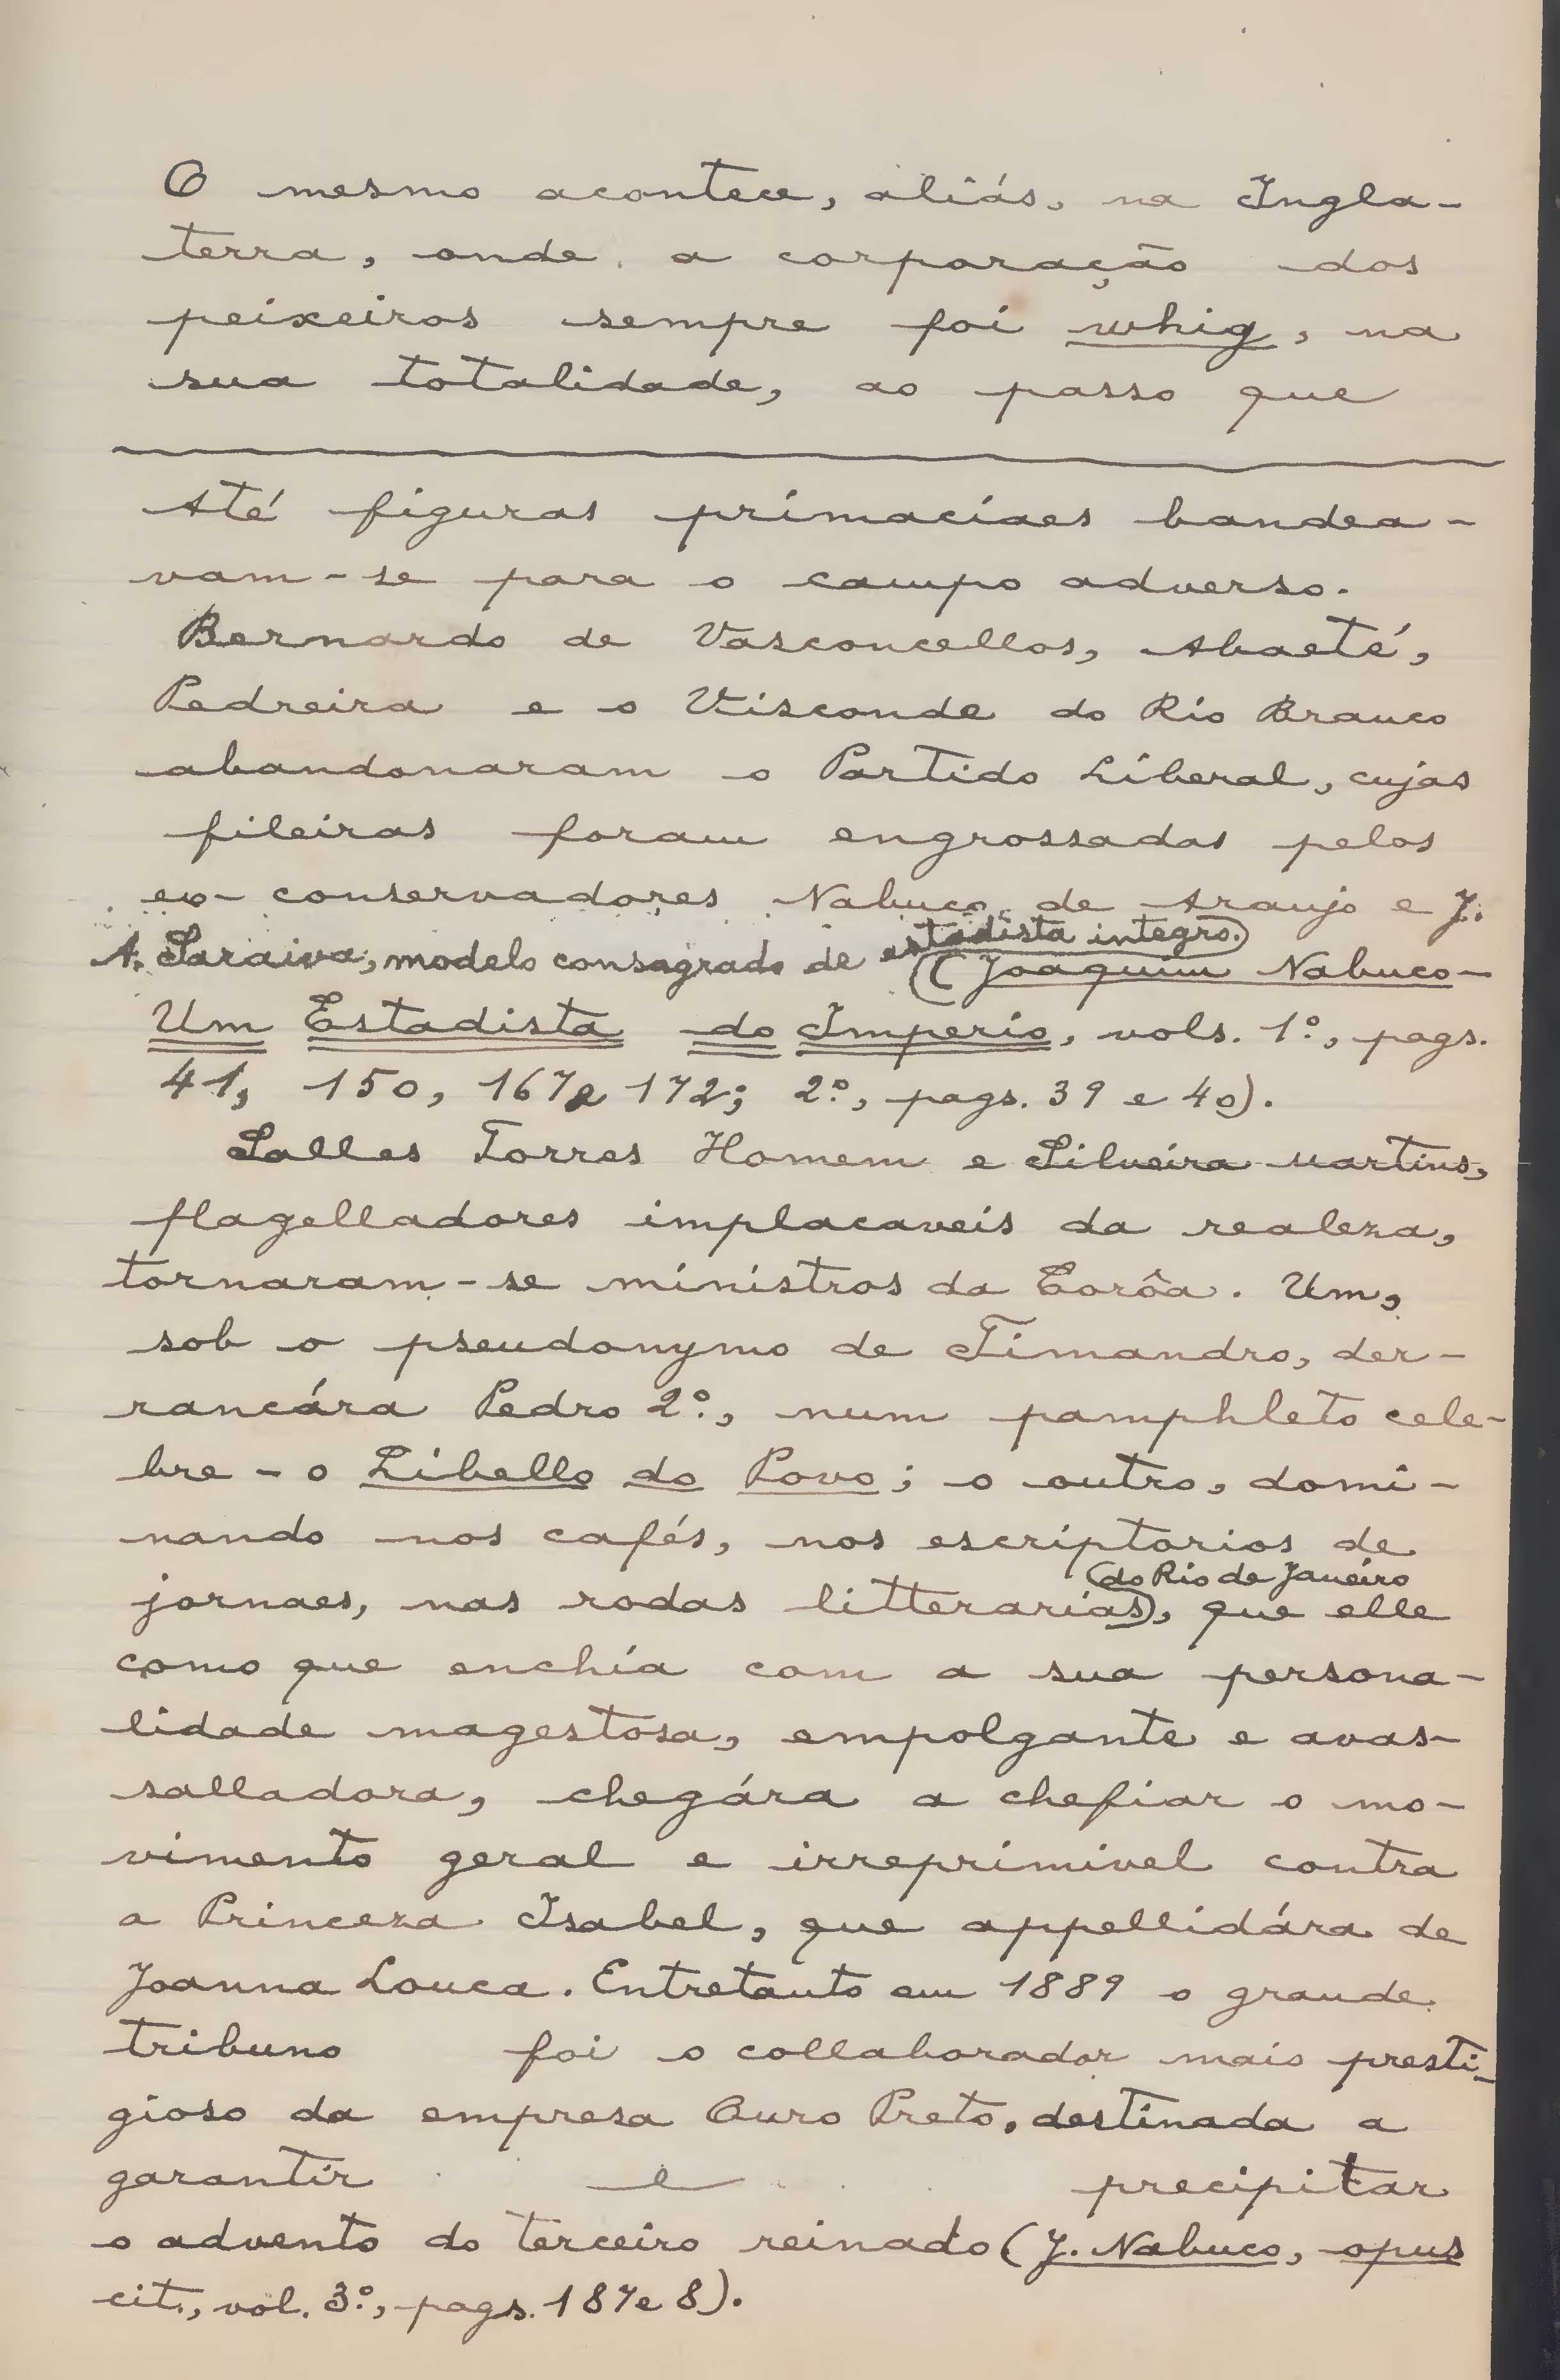 O mesmo acontece, aliás, na Ingla-
terra, onde a corporação dos
peixeiros sempre foi whig, na
sua totalidade, ao passo que
Até figuras primaciaes bandea-
vam-se para o campo adverso.
Bernardo de Vasconcellos, Abaeté,
Pedreira e o Visconde do Rio Branco
abandonaram o Partido Liberal, cujas
fileiras foram engrossadas pelos
ex-conservadores Nabuco de Araujo e J.
A. Saraiva, modelo consagrado de estadista integro.
(Joaquim Nabuco-
Um Estadista do Imperio, vols. 1º, pags.
41, 150, 167 e 172; 2º, pags. 39 e 40).
Salles Torres Homem e Silveira Martins,
flagelladores implacaveis da realeza,
tornaram-se ministros da Corôa. Um,
sob o pseudonymo de Timandro, der-
rancára Pedro 2º, num pamphleto cele-
bre - o Libello do Povo; o outro, domi-
nando nos cafés, nos escriptorios de
jornaes, nas rodas litterarias do Rio de Janeiro, que elle
como que enchia com a sua persona-
lidade magestosa, empolgante e avas-
salladora, chegára a chefiar o mo-
vimento geral e irreprimivel contra
a Princeza Isabel, que appellidára de
Joanna Louca. Entretanto em 1889 o grande
tribuno foi o collaborador mais presti-
gioso da empresa Ouro Preto, destinada a
garantir e precipitar
o advento do terceiro reinado (J. Nabuco, opus
cit., vol. 3º, pags. 187 e 8).